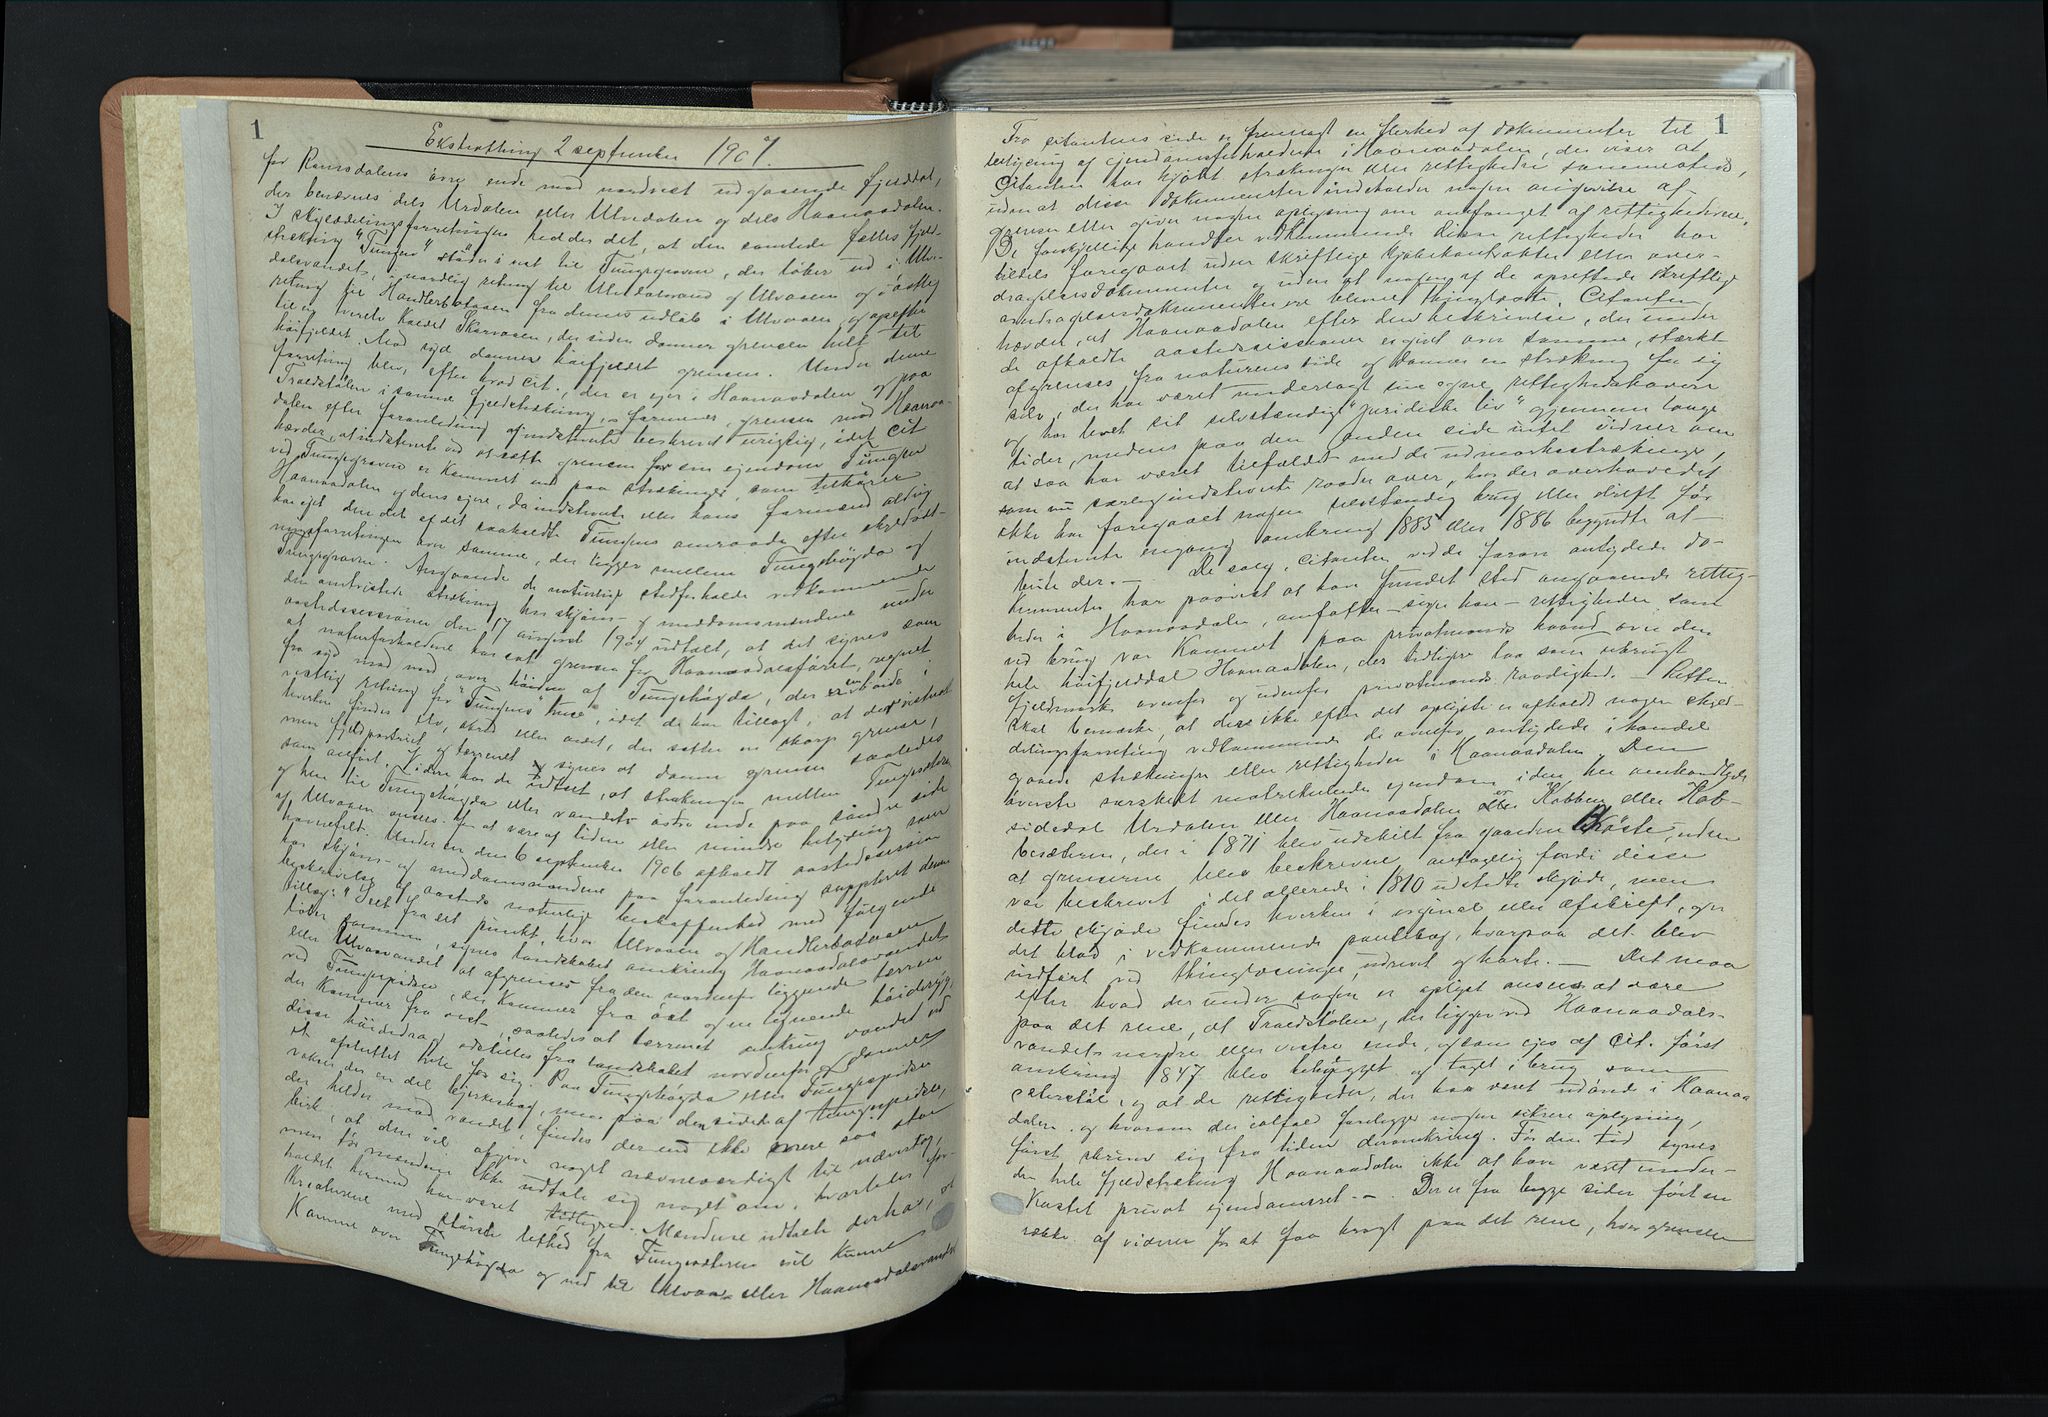 1
Ekstratthing 2 september 1907.
for Romsdalens øvre ende mod nordvest udgaaende fjelddal,
der benævnes dels Urdalen eller Ulvedalen og dels Haanaadalen.
I skylddelingsforretningen hedder det, at den samlede fælles fjeld-
strækning "Tungen" støder i vest til Tungegroven, der løber ud i Ulv-
dalsvandet, i nordlig retning til Ulvedalsvand og Ulvaaen og i østlig
retning til Handlerbotaaen fra dennes udløb i Ulvaaen, og opefter
til en kaldet Skarvaaen, der siden danner grensen helt til
høifjeldet. Mod syd danner høifjeldet grensen. Under denne
forretning blev, efter hvad cit., der er eier i Haanaadalen og paa
Traedstølen i samme fjeldstrækning, formener, grensen mod Haanaa-
dalen efter foranledning af indstevnte beskrevet urigtig, idet cit
hævder, at indstevnte ved at sætte grensen for sin eiendom Tungen
ved Tungegroven er kommet ind paa strækninger, som tilhører
Haanaadalen og dens eiere, da indstevnte eller hans formænd aldrig
har eiet den del af det saakaldte Tungens omraade efter skylddel-
ningsforretningen over samme, der ligger mellem Tungehøgda og
Tungegroven. Angaaende de naturlige stedforholde vedkommende
den omtvistede strækning har skjøns- og meddomsmændene under
aastedssessionen den 17 august 1904 udtalt, at det synes som
at naturforholdene har sat grensen for Haanaadresføret, regnet
fra syd mod nord, over høiden af Tungehøgda, der er en høide i
vestlig retning for "Tungens" huse, idet de har tillagt, at der vistnok
hverken findes elv, skred eller andet, der sætter en skarp grense,
men fjeldpartiet og terrenet synes at danne grensen saaledes
som anført. Videre har de udtalt, at strækningen mellem Tungesæteren
og hen til Tungehøgda eller vandets østre ende paa søndre side
af Ulvaaen ansees for at være af liden eller mindre betydning som
havnefelt. Under en den 6 september 1906 afholdt aastedssession
har skjøns- og meddomsmændene paa foranledning suppleret denne
beskrivelse af aastedets naturlige beskaffenhed med følgende
tillæg: "Seet fra det punkt, hvor Ulvaaen og Handlerbotaaen
løber sammen, synes landskabet omkring Haanaadalsvandet
eller Ulvaavandet at afgrenses fra den nordenfor liggende terren
ved Tungespidsen, der kommer fra øst og en lignende høideryg,
der kommer fra vest, saaledes at terrenet omkring vandet ved
disse høidedrag adskilles fra landskabet nordenfor og danner
et afsluttet hele for sig. Paa Tungehøgda eller Tungespidsen
vokser der en del birkeskog, men paa den side af tungespidsen,
der helder mod vandet, findes der nu ikke mere saa stor
birk, at den vil afgive noget nævneværdigt til nævertag,
men tør mændene ikke udtale sig noget om, hvorledes for-
holdet hermed har været tidligere. Mændene udtalte derhos, at
kreaturene med største lethed fra Tungesæteren vil kunne
komme over Tungehøgda og ned til Ulvaa- eller Haanaadalsvandet
1
Fra citantens side er fremlagt en flerhed af dokumenter til
belysning af eiendomsforholdene i Haanaadalen, der viser at
Citanten har kjøbt strækninger eller rettigheder sammesteds,
uden at disse dokumenter indeholder nogen angivelse af
grenser eller giver nogen oplysning om omfanget af rettighederne.
De forskjellige handler vedkommende disse rettigheder har
tildels foregaaet uden skriftlige kjøbekontrakter eller over-
dragelsesdokumenter og uden at nogen af de oprettede skriftlige
overdragelsesdokumenter er blevne thinglæste. Citanten
hævder, at Haanaadalen efter den beskrivelse, der under
de afholdte aastedssessioner er givet over samme, stærkt
afgrenses fra naturens side og danner en strækning for sig
selv, der har været underlagt sine egne rettighedshavere
og har levet sit selvstændige "juridiske liv" gjennem lange
tider, medens paa den anden side intet vidner om
at saa har været tilfældet med de udmarksstrækninger,
som nu særlig indstevnte raader over, hvor der overhovedet
ikke har foregaaet nogen selvstændig brug eller drift før
indstevnte engang omkring 1885 eller 1886 begyndte at
beite der. — De salg, citanten ved de foran antydede do-
kumenter har paavist at have fundet sted angaaende rettig-
heder i Haanaadalen, omfatter — siger han — rettigheder som
ved brug var kommet paa privatmands haand over den
hele høifjelddal Haanaadalen, der tidligere laa som ubrugt
fjeldmark ovenfor og udenfor privatmands raadighed. — Retten
skal bemærke, at der ikke efter det oplyste er afholdt nogen skyld-
delingsforretning vedkommende de ovenfor antydede i handel
gaaede strækninger eller rettigheder i Haanaadalen. Den
øverste særskilt matrikulerede eiendom i den her omhandlede
sidedal Urdalen eller Haanaadalen er Kabben eller Kab-
besæteren, der i 1871 blev udskilt fra gaarden Brøste, uden
at grenserne blev beskrevne antagelig fordi disse
var beskrevet i det allerede i 1810 udstedte skjøde, men
dette skjøde findes hverken i original eller afskrift, og er
det blad i vedkommende pantebog, hvorpaa det blev
indført ved thinglæsningen, udrevet og borte. — Det maa
efter hvad der under sagen er oplyst ansees at være
paa det rene, at Traedstølen, der ligger ved Haanaadals-
vandets nordre eller vestre ende, og som eies af cit. først
omkring 1847 blev bebygget og taget i brug som
sæterstøl, og at de rettigheder, der har været udøvede i Haanaa
dalen, og hvorom der ialfald foreligger nogen sikrere oplysning,
først skriver sig fra tiden deromkring. Før den tid synes
den hele fjeldstrækning Haanaadalen ikke at have været under-
kastet privat eiendomsret. — Der er fra begge sider ført en
række af vidner for at faa bragt paa det rene, hvor grensen